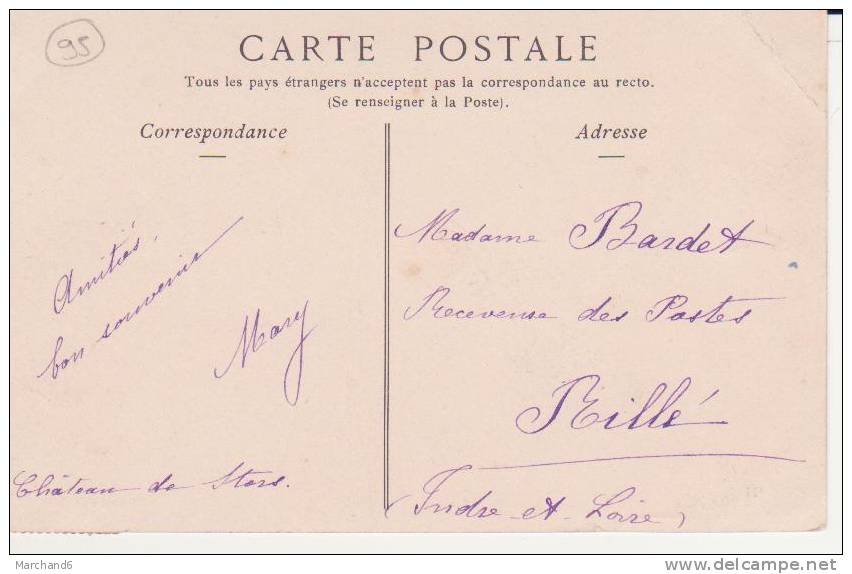 95
CARTE POSTALE
Tous les pays étrangers n'acceptent pas la correspondance au recto.
(Se renseigner à la Poste).
Correspondance
Amitiés,
bon souvenir
Mary
Château de Stors.
Adresse
Madame Bardet
Receveuse des Postes
Rillé
(Indre-et-Loire)
Marchand6
www.delcampe.net